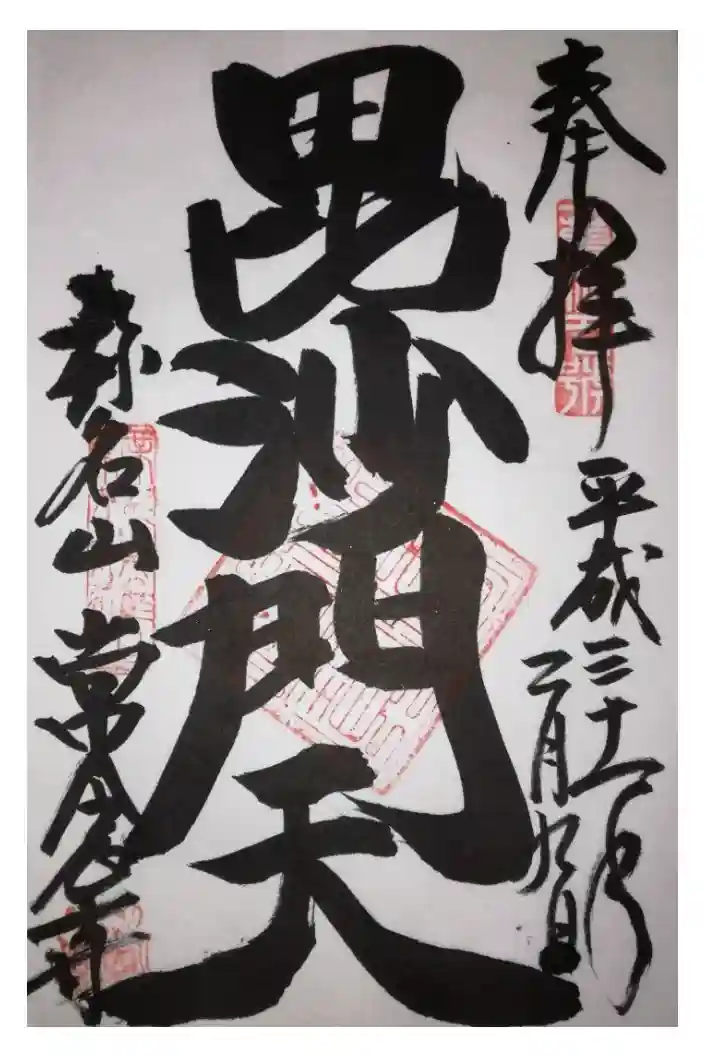 奉拝
平成三十一年
二月九日
毘沙門天
称名山 常念寺